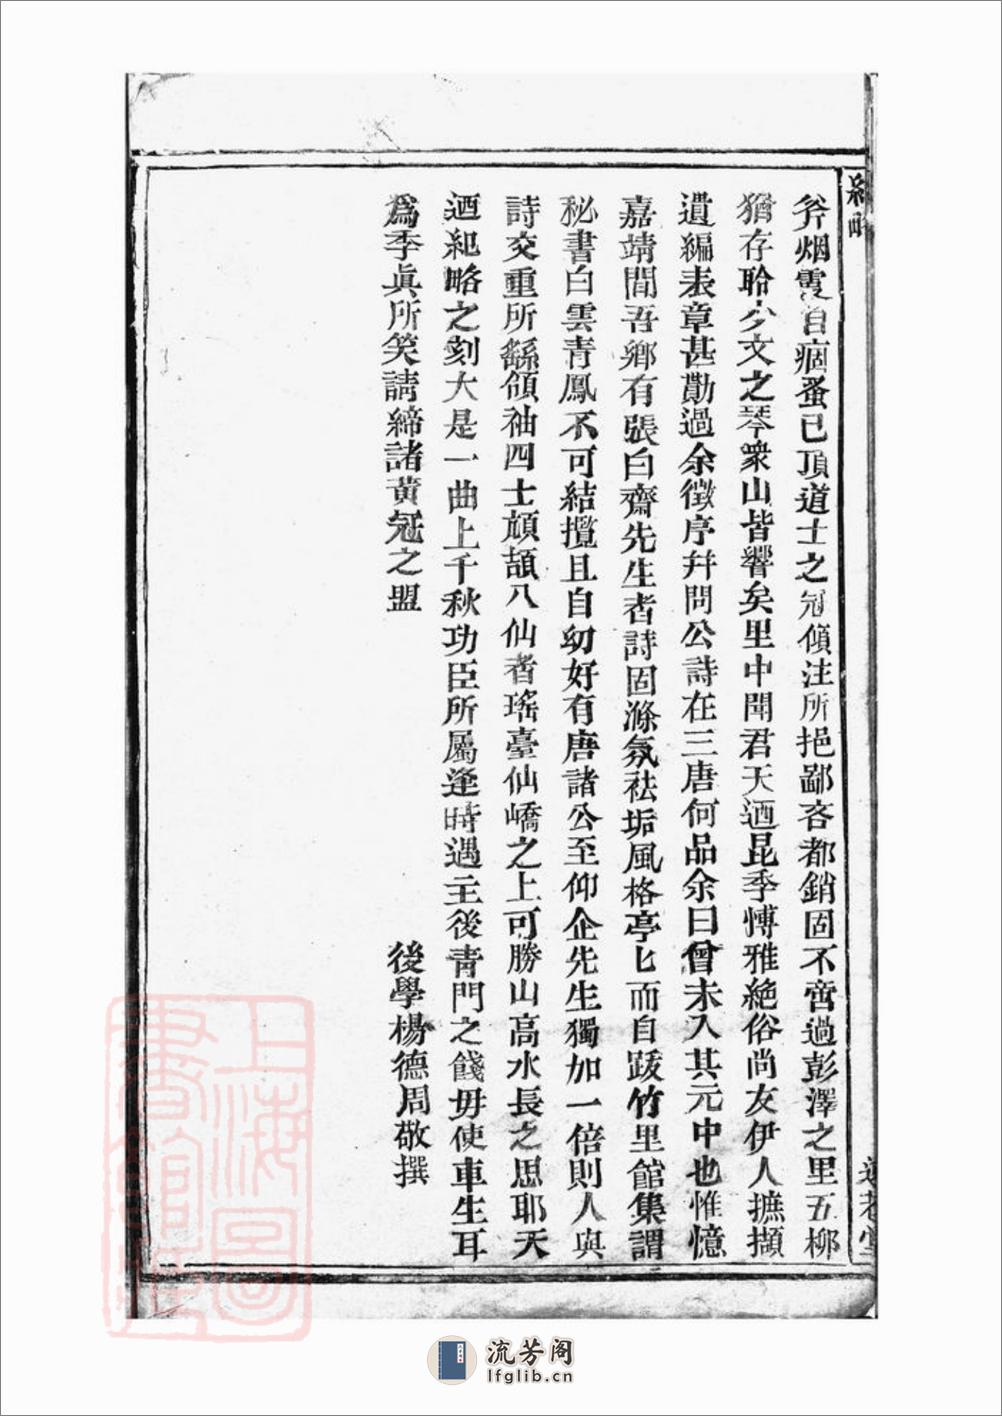 斧烟霞自痼蚤已頂道士之冠傾注所挹鄙吝都銷固不啻過彭澤之里五柳
猶存聆少文之琴衆山皆響矣里中聞君天迺昆季慱雅絶俗尚友伊人摭擷
遺編表章甚勤過余徵序幷問公詩在三唐何品余曰曾未入其元中也惟憶
嘉靖間吾鄉有張白齋先生者詩固滌氛祛垢風格亭匕而自跋竹里館集謂
秘書白雲青鳳不可結攬且自幼好有唐諸公至仰企先生獨加一倍則人與
詩交重所繇領袖四士頏頡八仙者瑤臺仙嶠之上可勝山高水長之思耶天
迺紀略之刻大是一曲上千秋功臣所屬逢時遇主後青門之餞毋使車生耳
爲季眞所笑請締諸黄冠之盟
後學楊德周敬撰
上海圖書館藏
流芳阁
lfglib.cn